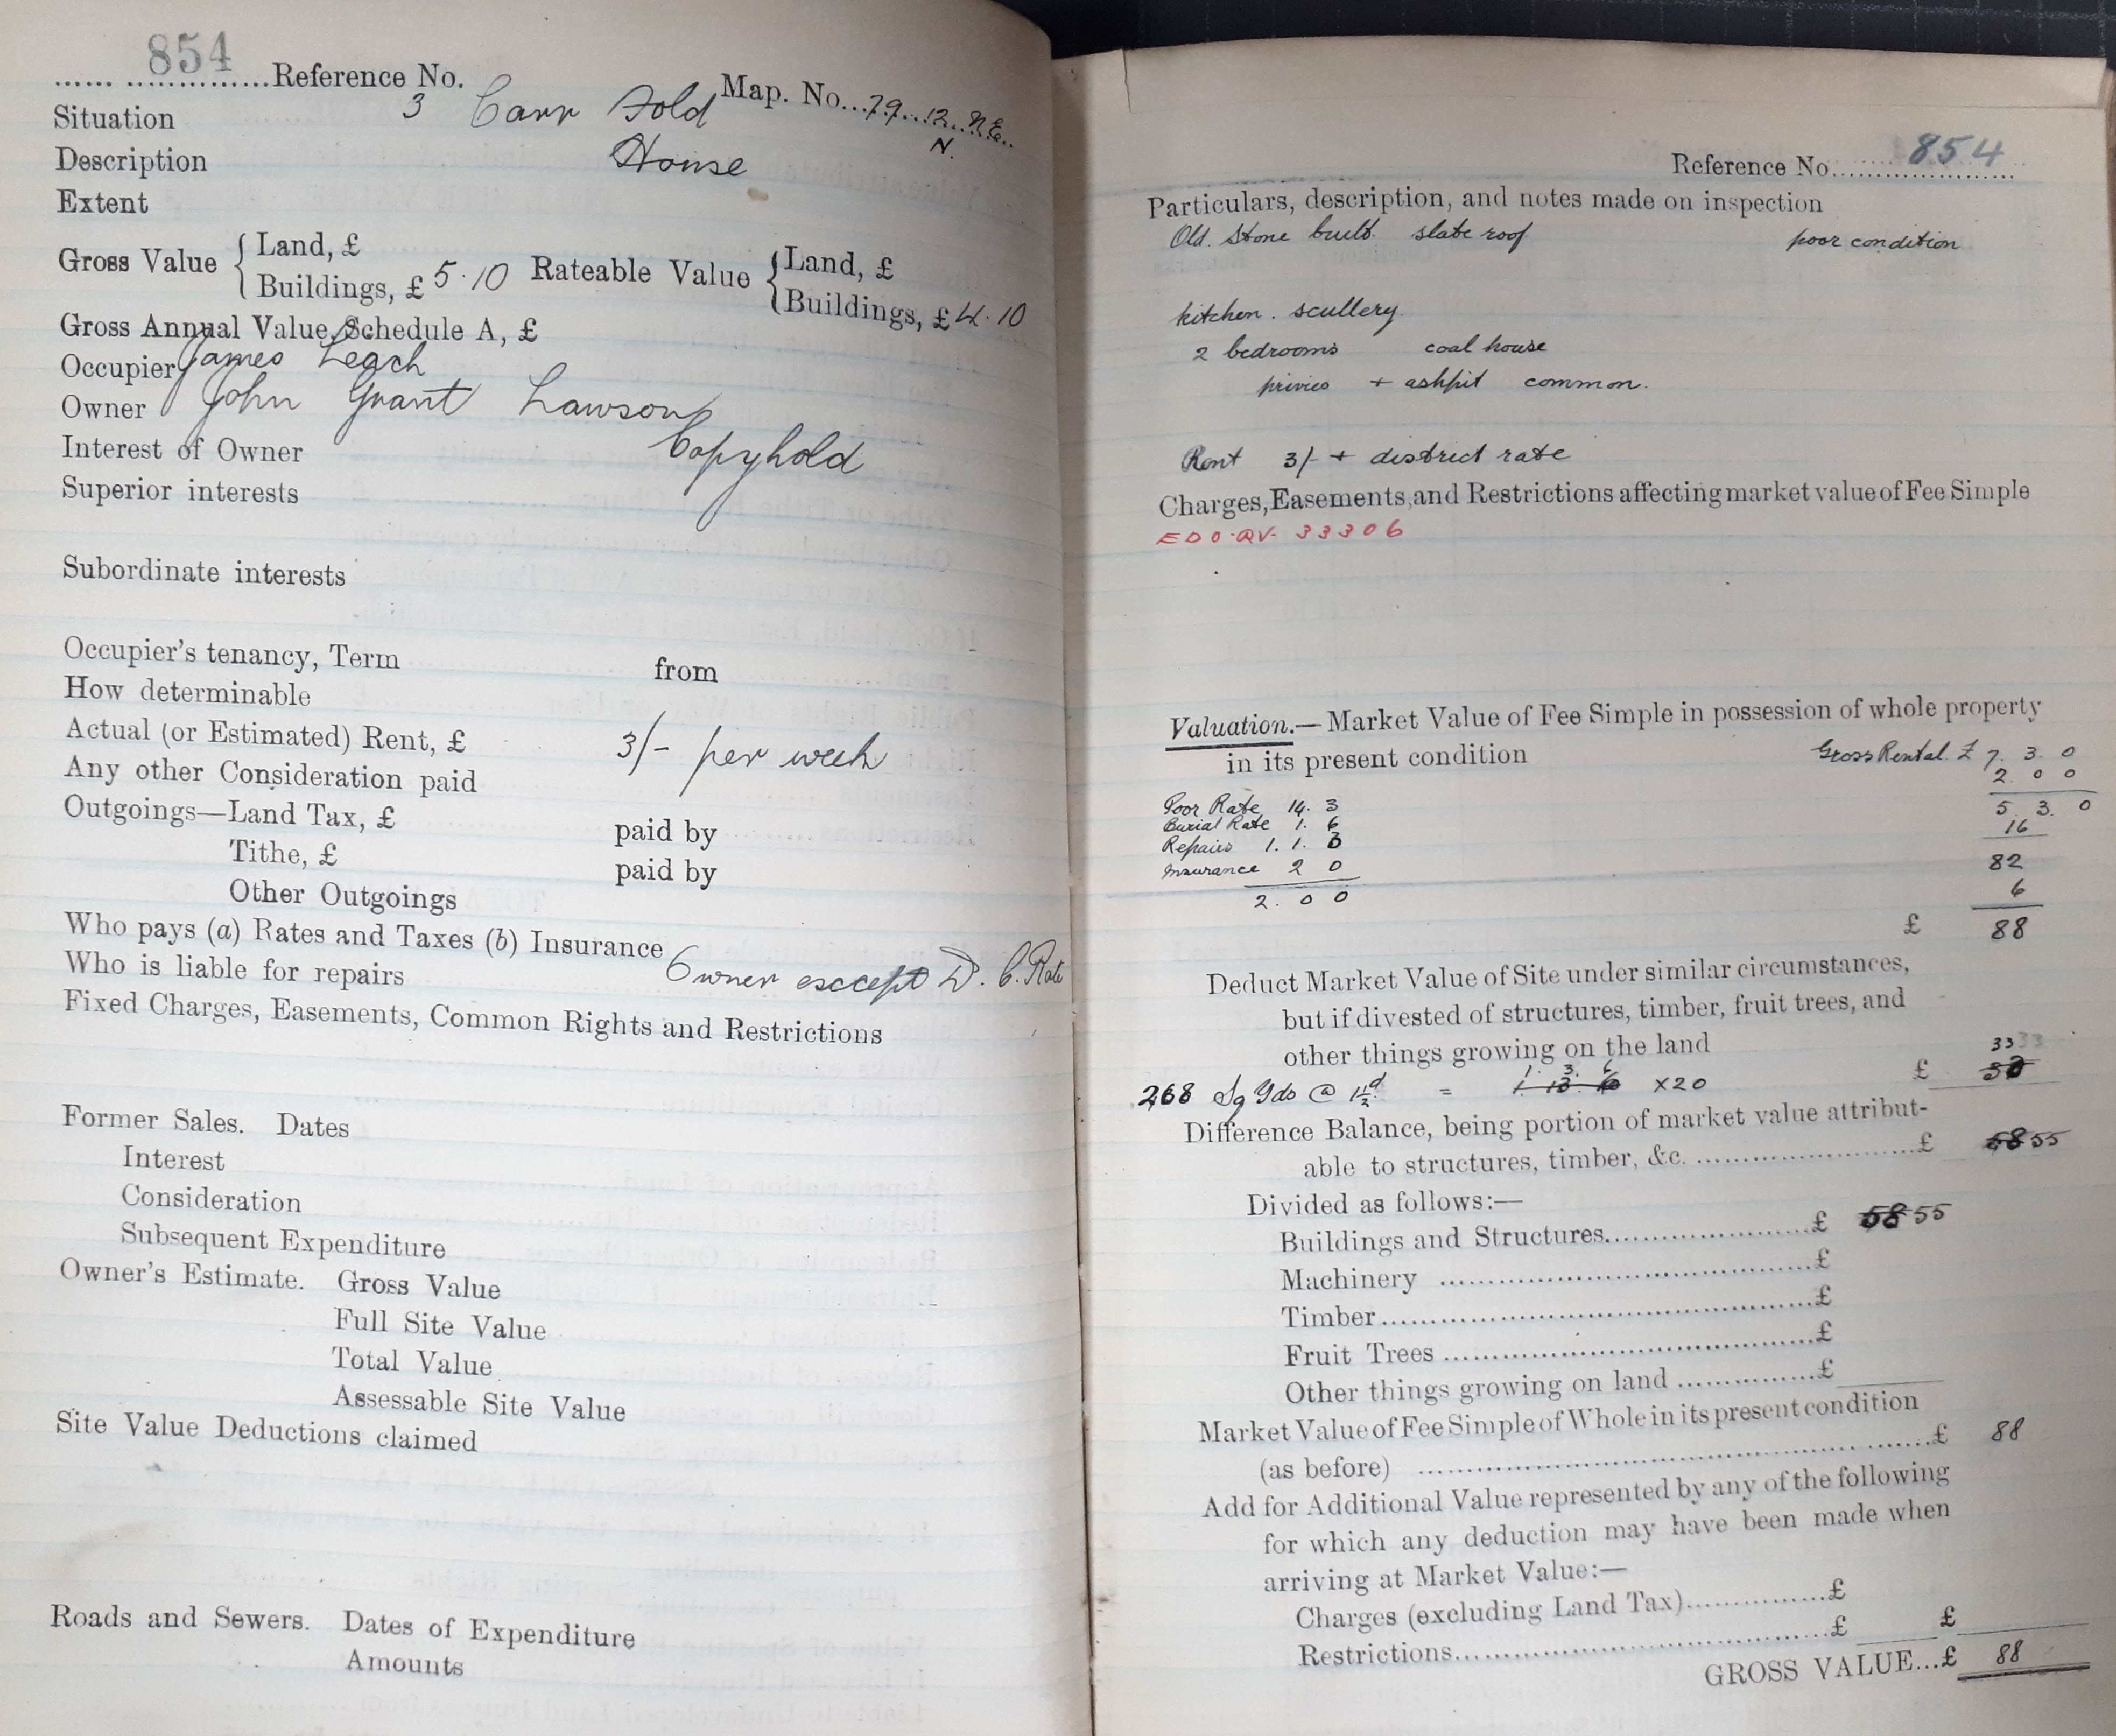 854
...... ..............Reference No. Map. No...79...12...NE...
N.
Situation 3 Carr Fold
Description House
Extent
Gross Value { Land, £ Rateable Value { Land, £
Buildings, £ 5.10 Buildings, £ 4.10
Gross Annual Value, Schedule A, £
Occupier James Leach
Owner John Grant Lawson
Interest of Owner Copyhold
Superior interests
Subordinate interests
Occupier's tenancy, Term from
How determinable
Actual (or Estimated) Rent, £ 3/- per week
Any other Consideration paid
Outgoings—Land Tax, £ paid by
Tithe, £ paid by
Other Outgoings
Who pays (a) Rates and Taxes (b) Insurance
Who is liable for repairs Owner except D. C. Rate
Fixed Charges, Easements, Common Rights and Restrictions
Former Sales. Dates
Interest
Consideration
Subsequent Expenditure
Owner's Estimate. Gross Value
Full Site Value
Total Value
Assessable Site Value
Site Value Deductions claimed
Roads and Sewers. Dates of Expenditure
Amounts
Reference No. 854
Particulars, description, and notes made on inspection
Old. Stone built slate roof poor condition
kitchen. scullery.
2 bedrooms coal house
privies + ashpit common.
Rent 3/- + district rate
Charges, Easements, and Restrictions affecting market value of Fee Simple
EDO.QV. 33306
Valuation.—Market Value of Fee Simple in possession of whole property
in its present condition Gross Rental. £ 7. 3. 0
2. 0 0
Poor Rate 14. 3 5. 3. 0
Burial Rate 1. 6 16
Repairs 1. 1. 3 82
Insurance 2 0 6
2. 0 0 £ 88
Deduct Market Value of Site under similar circumstances,
but if divested of structures, timber, fruit trees, and
other things growing on the land 33 33
1. 3. 6
268 Sq Yds @ 1½d = 1. 13. 6 x20 £
Difference Balance, being portion of market value attribut-
able to structures, timber, &c. ........................£ 58 55
Divided as follows:—
Buildings and Structures........................£ 58 55
Machinery ........................£
Timber........................£
Fruit Trees ........................£
Other things growing on land ................£
Market Value of Fee Simple of Whole in its present condition
(as before) ........................£ 88
Add for Additional Value represented by any of the following
for which any deduction may have been made when
arriving at Market Value:—
Charges (excluding Land Tax)................£
Restrictions........................£ £
GROSS VALUE...£ 88